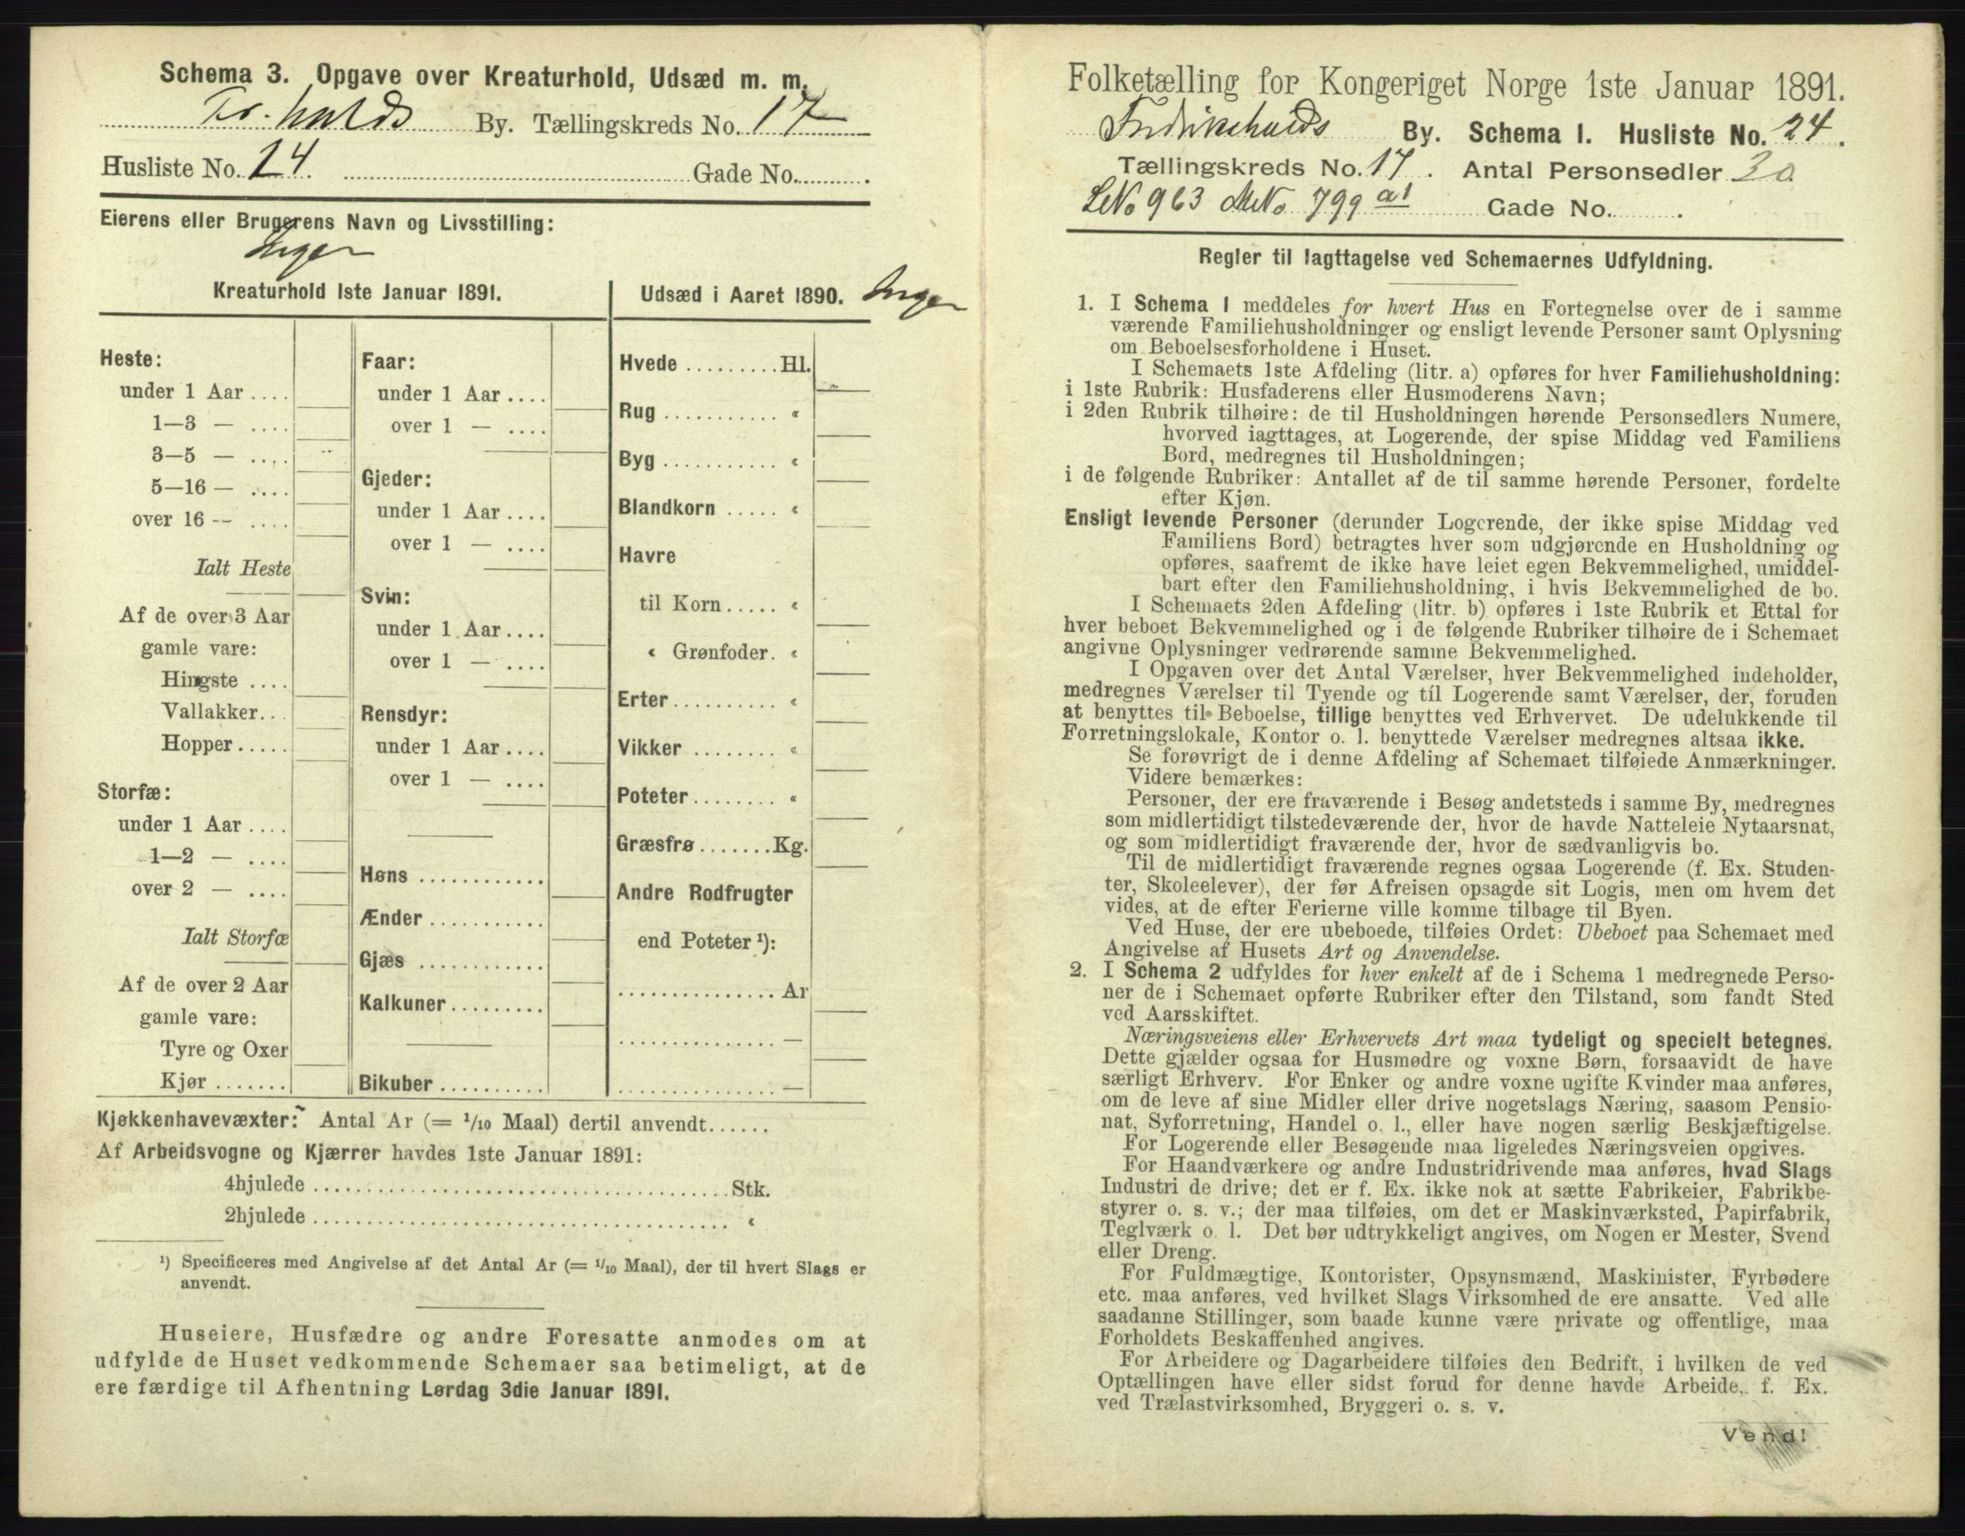 Schema 3. Opgave over Kreaturhold, Udsæd m. m.
Fr.halds By. Tællingskreds No. 17
Husliste No. 24. Gade No. .
Eierens eller Brugerens Navn og Livsstilling:
Ingen
Kreaturhold 1ste Januar 1891.
Heste:
under 1 Aar ....
1—3 — ....
3—5 — ....
5—16 — ....
over 16 — ....
Ialt Heste
Af de over 3 Aar
gamle vare:
Hingste ....
Vallakker...
Hopper.....
Storfæ:
under 1 Aar ....
1—2 — ....
over 2 — ....
Ialt Storfæ
Af de over 2 Aar
gamle vare:
Tyre og Oxer
Kjør .......
Faar:
under 1 Aar ....
over 1 — ....
Gjeder:
under 1 Aar ....
over 1 — ....
Svin:
under 1 Aar ....
over 1 — ....
Rensdyr:
under 1 Aar ....
over 1 — ....
Høns ............
Ænder ...........
Gjæs ............
Kalkuner .........
Bikuber ..........
Udsæd i Aaret 1890. Ingen
Hvede .........Hl.
Rug ........... «
Byg ........... «
Blandkorn ..... «
Havre
til Korn ..... «
« Grønfoder. «
Erter .......... «
Vikker ........ «
Poteter ........ «
Græsfrø .......Kg.
Andre Rodfrugter
end Poteter ¹):
............... Ar
............... —
............... —
Kjøkkenhavevæxter: Antal Ar (= 1/10 Maal) dertil anvendt......
Af Arbeidsvogne og Kjærrer havdes 1ste Januar 1891:
4hjulede ........................................ Stk.
2hjulede ........................................ «
¹) Specificeres med Angivelse af det Antal Ar (= 1/10 Maal), der til hvert Slags er
anvendt.
Huseiere, Husfædre og andre Foresatte anmodes om at
udfylde de Huset vedkommende Schemaer saa betimeligt, at de
ere færdige til Afhentning Lørdag 3die Januar 1891.
Folketælling for Kongeriget Norge 1ste Januar 1891.
Fredrikshalds By. Schema I. Husliste No. 24.
Tællingskreds No. 17. Antal Personsedler 30
LNo 963 MNo 799 a1 Gade No. .
Regler til Iagttagelse ved Schemaernes Udfyldning.
1. I Schema 1 meddeles for hvert Hus en Fortegnelse over de i samme
værende Familiehusholdninger og ensligt levende Personer samt Oplysning
om Beboelsesforholdene i Huset.
I Schemaets 1ste Afdeling (litr. a) opføres for hver Familiehusholdning:
i 1ste Rubrik: Husfaderens eller Husmoderens Navn;
i 2den Rubrik tilhøire: de til Husholdningen hørende Personsedlers Numere,
hvorved iagttages, at Logerende, der spise Middag ved Familiens
Bord, medregnes til Husholdningen;
i de følgende Rubriker: Antallet af de til samme hørende Personer, fordelte
efter Kjøn.
Ensligt levende Personer (derunder Logerende, der ikke spise Middag ved
Familiens Bord) betragtes hver som udgjørende en Husholdning og
opføres, saafremt de ikke have leiet egen Bekvemmelighed, umiddel-
bart efter den Familiehusholdning, i hvis Bekvemmelighed de bo.
I Schemaets 2den Afdeling (litr. b) opføres i 1ste Rubrik et Ettal for
hver beboet Bekvemmelighed og i de følgende Rubriker tilhøire de i Schemaet
angivne Oplysninger vedrørende samme Bekvemmelighed.
I Opgaven over det Antal Værelser, hver Bekvemmelighed indeholder,
medregnes Værelser til Tyende og til Logerende samt Værelser, der, foruden
at benyttes til Beboelse, tillige benyttes ved Erhvervet. De udelukkende til
Forretningslokale, Kontor o. l. benyttede Værelser medregnes altsaa ikke.
Se forøvrigt de i denne Afdeling af Schemaet tilføiede Anmærkninger.
Videre bemærkes:
Personer, der ere fraværende i Besøg andetsteds i samme By, medregnes
som midlertidigt tilstedeværende der, hvor de havde Natteleie Nytaarsnat,
og som midlertidigt fraværende der, hvor de sædvanligvis bo.
Til de midlertidigt fraværende regnes ogsaa Logerende (f. Ex. Studen-
ter, Skoleelever), der før Afreisen opsagde sit Logis, men om hvem det
vides, at de efter Ferierne ville komme tilbage til Byen.
Ved Huse, der ere ubeboede, tilføies Ordet: Ubeboet paa Schemaet med
Angivelse af Husets Art og Anvendelse.
2. I Schema 2 udfyldes for hver enkelt af de i Schema 1 medregnede Perso-
ner de i Schemaet opførte Rubriker efter den Tilstand, som fandt Sted
ved Aarsskiftet.
Næringsveiens eller Erhvervets Art maa tydeligt og specielt betegnes.
Dette gjælder ogsaa for Husmødre og voxne Børn, forsaavidt de have
særligt Erhverv. For Enker og andre voxne ugifte Kvinder maa anføres,
om de leve af sine Midler eller drive nogetslags Næring, saasom Pensio-
nat, Syforretning, Handel o. l., eller have nogen særlig Beskjæftigelse.
For Logerende eller Besøgende maa ligeledes Næringsveien opgives.
For Haandværkere og andre Industridrivende maa anføres, hvad Slags
Industri de drive; det er f. Ex. ikke nok at sætte Fabrikeier, Fabrikbe-
styrer o. s. v.; der maa tilføies, om det er Maskinværksted, Papirfabrik,
Teglværk o. l. Det bør udtrykkeligt angives, om Nogen er Mester, Svend
eller Dreng.
For Fuldmægtige, Kontorister, Opsynsmænd, Maskinister, Fyrbødere
etc. maa anføres, ved hvilket Slags Virksomhed de ere ansatte. Ved alle
saadanne Stillinger, som baade kunne være private og offentlige, maa
Forholdets Beskaffenhed angives.
For Arbeidere og Dagarbeidere tilføies den Bedrift, i hvilken de ved
Optællingen have eller sidst forud for denne havde Arbeide, f. Ex.
ved Trælastvirksomhed, Bryggeri o. s. v.
Vend!